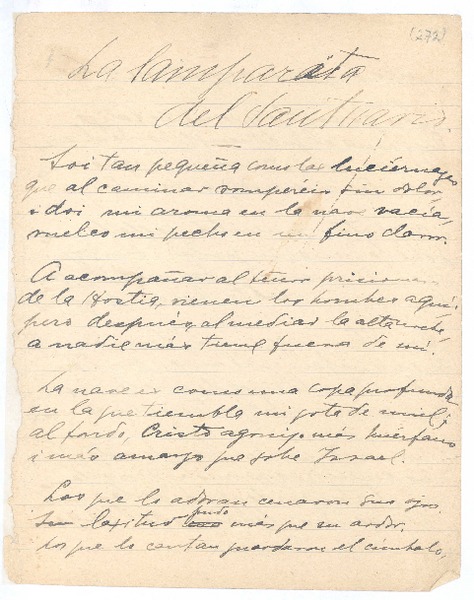 (272)
La lamparita
del Santuario.
Soi tan pequeña como las luciérnagas
que al caminar romperéis sin dolor
i doi mi aroma en la nave vacía,
vuelco mi pecho en un fino clamor.
A acompañar al Señor prisionero
de la Hostia, vienen los hombres aquí
pero después, al mediar la alta noche
a nadie más tiene fuera de mí.
La nave es como una copa profunda
en la que tiembla mi gota de miel;
al fondo, Cristo agonizo más huérfano
i más amargo que sobre Israel.
Los que le adoran cerraron sus ojos.
Su laxitud pudo más que su ardor.
Los que le cantan guardaron el címbalo,